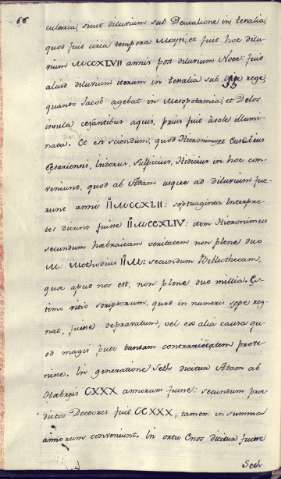 66
cularia; sicut diluvium sub Deucalione in tesalia;
quod fuit circa tempora Moysi, et fuit hoc dilu-
vium MCCXLVII annis post diluvium Noe. Fuit
aliud diluvium iterum in tesalia sub rege,
quando Jacob agebat in Mesopotamia; et Delos
insula cesantibus aquis, prius fuit a sole illumi-
nata. Et est sciendum, quod Hieronimus Eusebius
Cesariensis, Isidorus, Sulpicius, in hoc con-
veniunt, quod ab Adam usque ad diluvium fue-
runt anni IIMCCXLII: septuaginta Interpre-
tes dicunt fuisse IIMCCXLIV: item Hieronimus
secundum habraicam veritatem non plene duo
M. Methodius IIM: secundum Bibliothecam,
qua apud nos est, non plene duo millia. Es-
timo vitio scriptorum, quod in numeris sepe reg-
nat, fuisse depravatum, vel ex alia causa qu
od magis puto tantam contrarietatem prove-
nire. In generatione Seth dicitur Adam ab
Habreis CXXX annorum fuisse: secundum pre
dictos Doctores fuit CCXXX, tamen in summa
annorum conveniunt. In ortu Enos dicitur fuisse
Seth